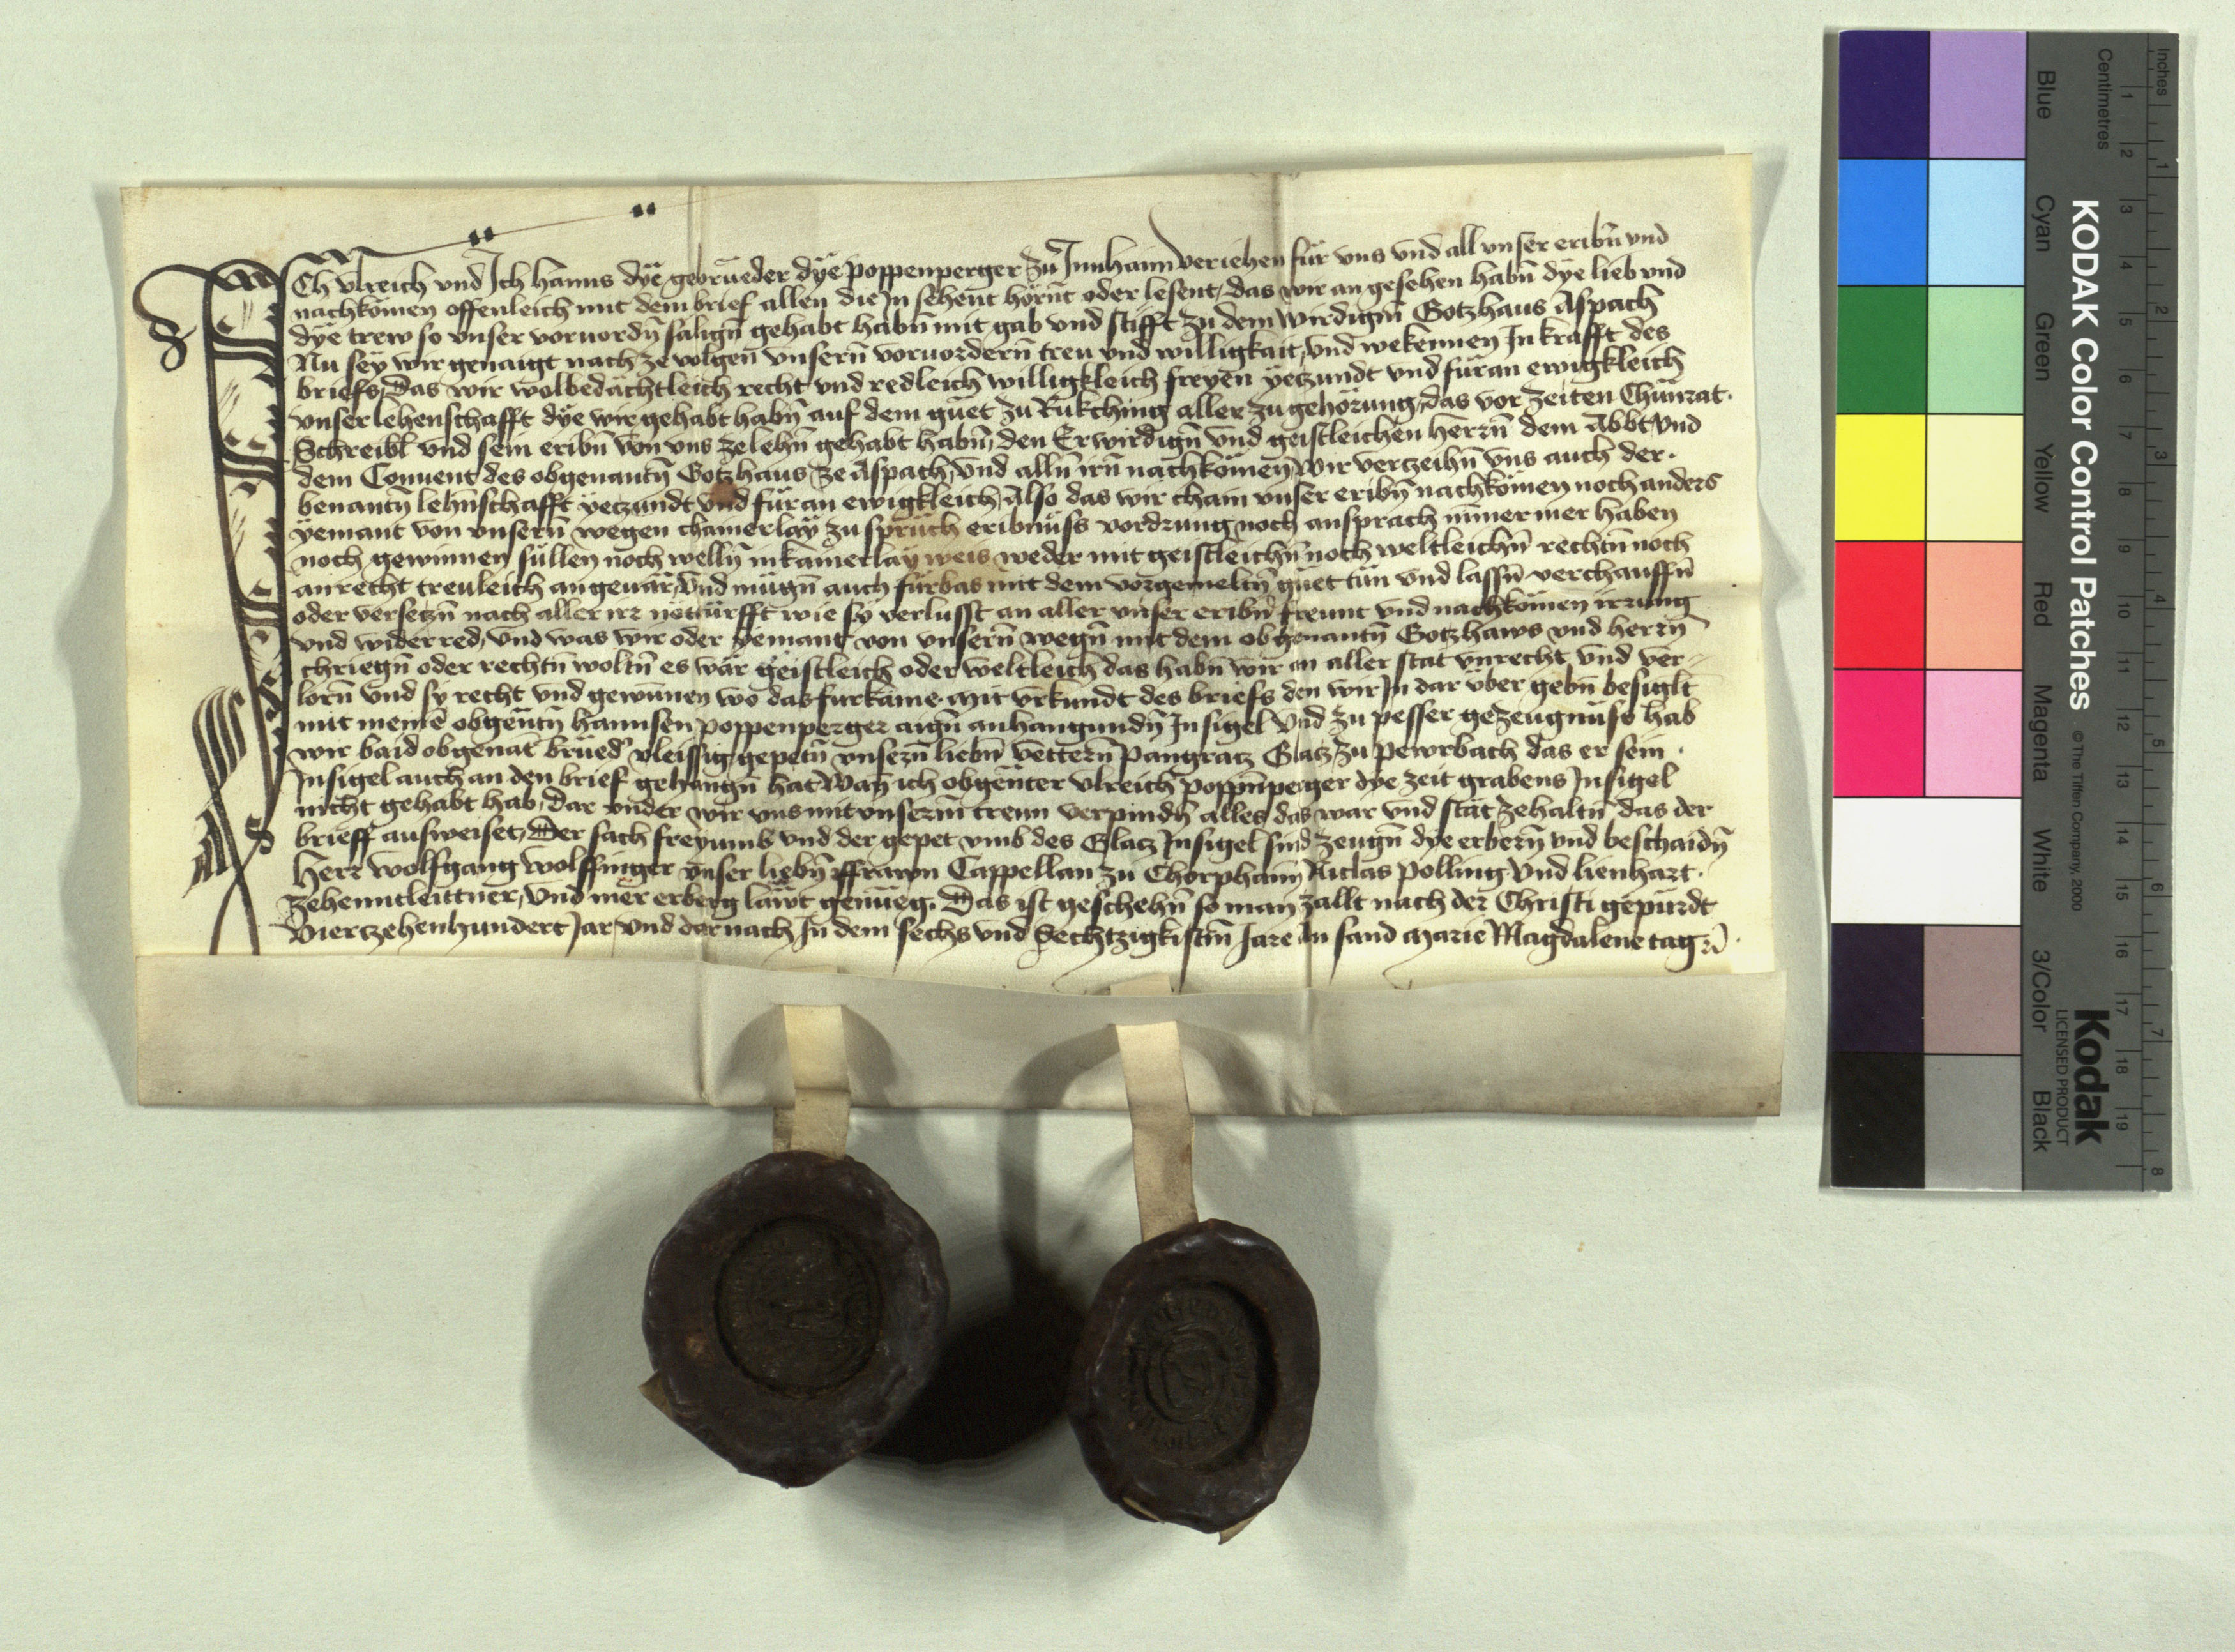 Ich Vlreich vnd Ich Hanns dÿe gebrueder dÿe poppenperger zu Innhaim veriehen für vns vnd all vnser eribn̄ vnd
nachkömen offenleich mit dem brief allen die In sehent hörnt oder lesent, das wir an gesehen habn̄ dÿe lieb vnd
dÿe trew so vnser voruordn̄ sälign̄ gehabt habn̄ mit gab vnd stifft zu dem wirdign̄ Gotzhaus Aspach
Nu seÿ wir genaigt nach ze volgen vnsern̄ voruordern̄ treu vnd willigkait, vnd wekennen In krafft des
briefs, Das wir wolbedächtleich recht vnd redleich willigkleich freyen ÿetzundt vnd füran ewigkleich
vnser lehenschafft dÿe wir gehabt habn̄ auf dem guet zu Rukching aller zugehörung, das vor zeiten Chünrat
Schreibl vnd sein eribn̄ von vns ze lehn̄ gehabt habn̄, den Erwirdign̄ vnd geistleichen herrn̄ dem Abbt vnd
dem Conuent des obgenantn̄ Gotzhaus ze Aspach, vnd alln̄ irn̄ nachkömen, wir verzeihn̄ vns auch der
benantn̄ lehnschafft ÿetzundt vnd füran ewigkleich, Also das wir chain vnser eribn̄ nachkömen noch anders
ÿemant von vnsern̄ wegen chainerlaÿ zu sprüch eribnüss vordrung noch ansprach nimer mer haben
noch gewinnen süllen noch welln̄ in kainerlaÿ weis weder mit geistleichn̄ noch weltleichn̄ rechtn̄ noch
an recht treuleich an geuär, vnd mügn̄ auch fürbas mit dem vorgemeltn̄ guet tün vnd lassn̄ verchauffn̄
oder versetzn̄ nach aller irr nottürfft wie sÿ verlusst an aller vnser eribn̄ freunt vnd nachkömen irrung
vnd widerred, vnd was wir oder ÿemant von vnsern̄ wegn̄ mit dem obgenantn̄ Gotzhaws vnd herrn̄
chriegn̄ oder rechtn̄ woltn̄ es wär geistleich oder weltleich das habn̄ wir an aller stat vnrecht vnd ver-
lorn̄ vnd sy recht vnd gewunnen wo das furkäme Mit vrkundt des briefs den wir In dar über gebn̄ besiglt
mit meinē obgen̄tn̄ hannsen poppenperger aign̄ anhangundn̄ Insigel vnd zu pesser gezeugnüss hab
wir baid obgenāt brued' vleissig gepetn̄ vnsern̄ liebn̄ vettern̄ Pangratz Glatz zu pewrbach das er sein
Insigel auch an den brief gehangn̄ hat Wan ich obgen̄ter vlreich poppn̄perger dÿe zeit grabens Insigel
nicht gehabt hab, dar vnder wir vns mit vnsern̄ treun verpindn̄ alles das war vnd stät zehaltn̄ das der
brieff ausweiset, Der sach freyumb vnd der gepet vmb des Glatz Insigel sind zeugn̄ dÿe erbern̄ vnd beschaidn̄
Herr wolfgang wolffinger vnser liebn̄ ffrawn Cappellan zu Chorphaim Niclas Polling vnd lienhart
Zehenntleittner, vnd mer erberg läwt genueg. Das ist geschehn̄ so man zallt nach der Christi gepürdt
Vierzehenhundert Jar, vnd darnach In dem sechs vnd Sechtzigkistn̄ Jare An sand Marie Magdalene tag
Inches
Centimetres
1 2 3 4 5 6 7 8 9 10 11 12 13 14 15 16 17 18 19
1 2 3 4 5 6 7 8
KODAK Color Control Patches
© The Tiffen Company, 2000
Kodak
LICENSED PRODUCT
Blue Cyan Green Yellow Red Magenta White 3/Color Black